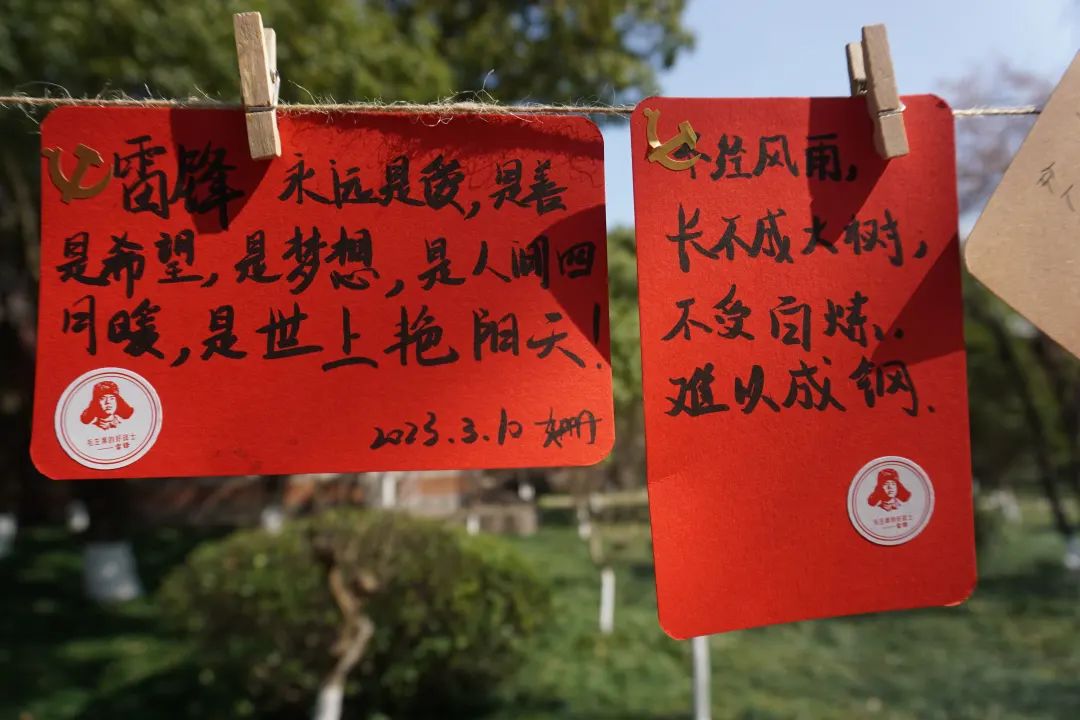 雷锋 永远是爱,是善
是希望,是梦想,是人间四
月暖,是世上艳阳天!
2023.3.10
毛主席的好战士
——雷锋
不经风雨,
长不成大树,
不受百炼,
难以成钢.
毛主席的好战士
——雷锋